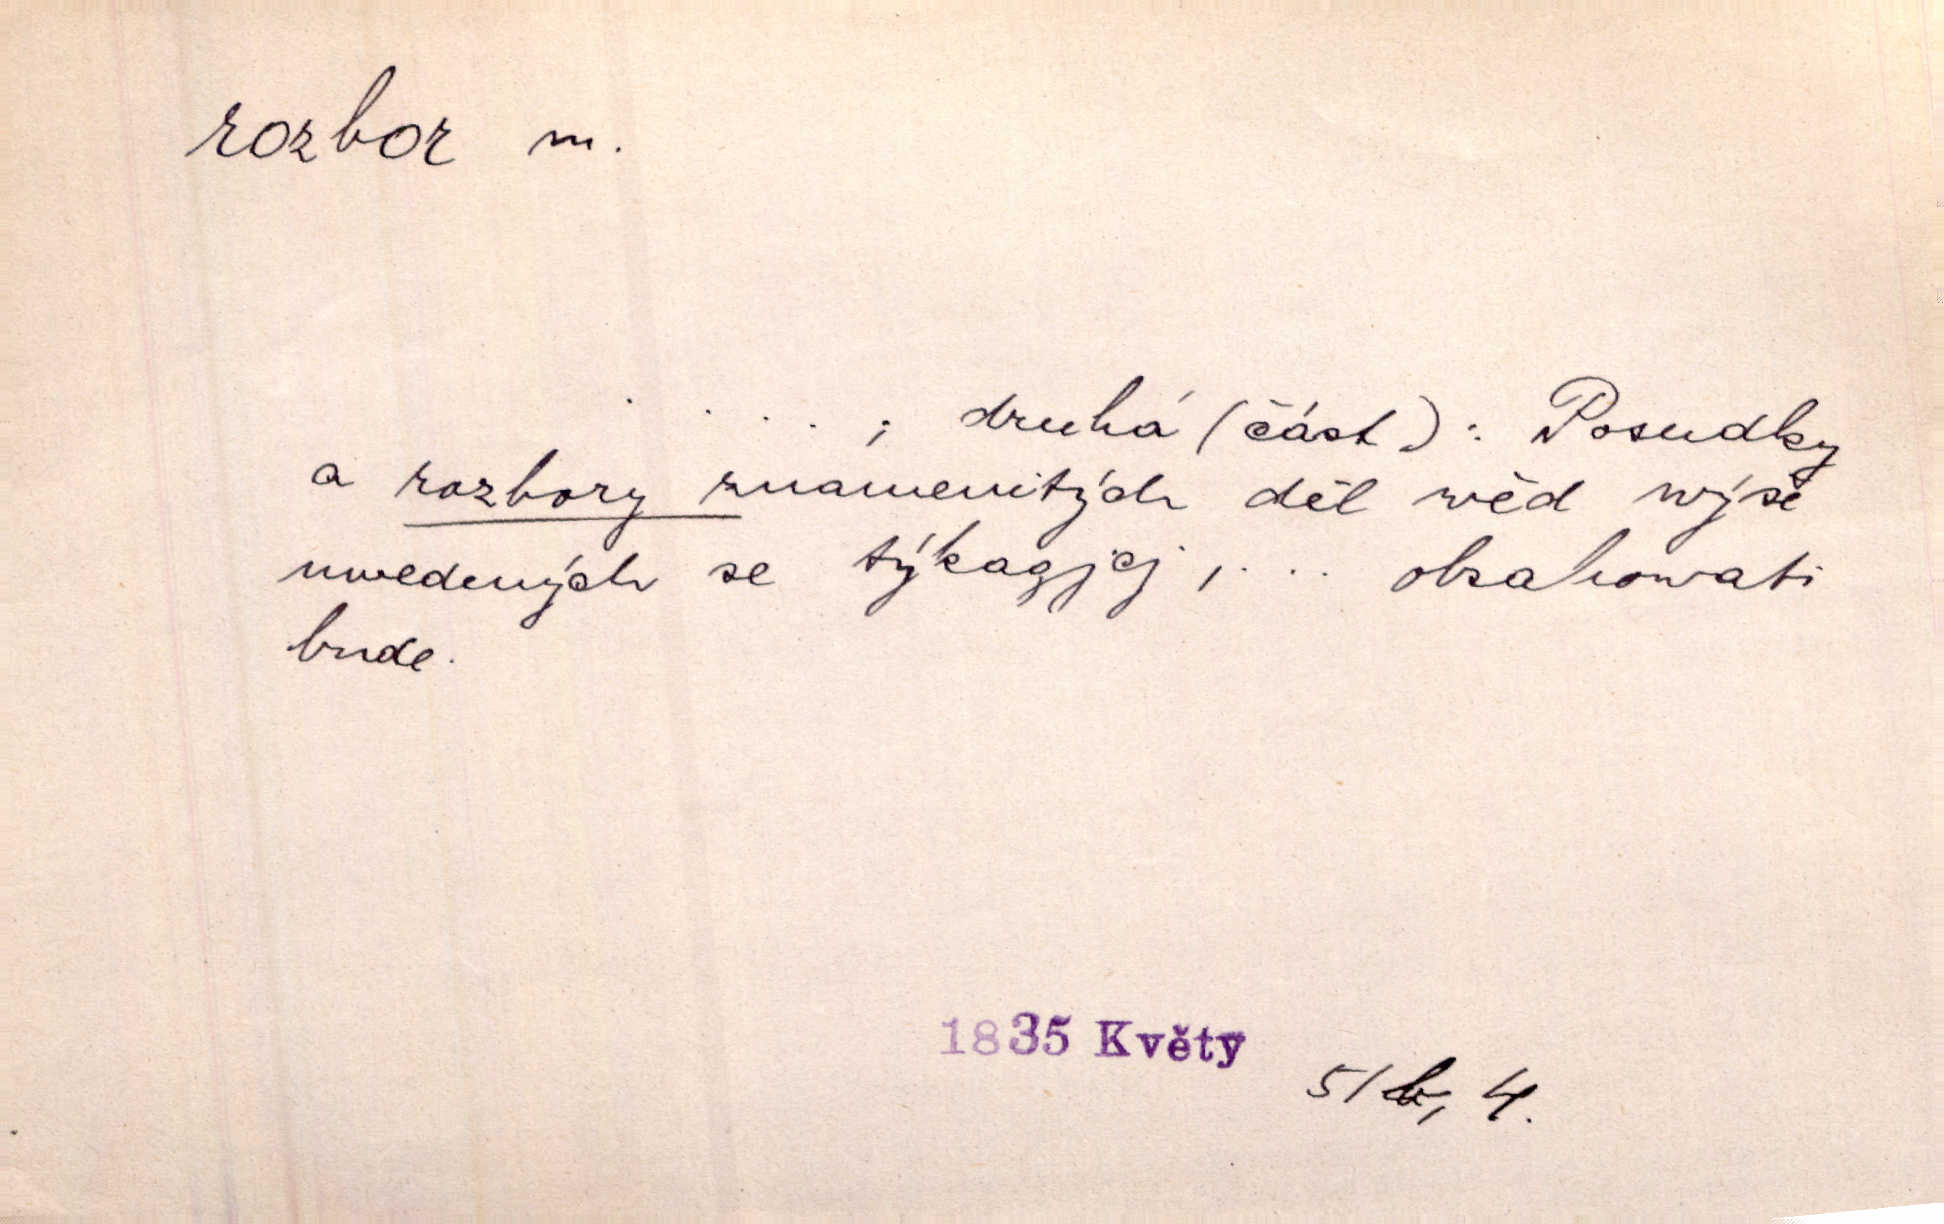 rozbor m.
. . . . ; druhá (část): Posudky
a rozbory znamenitých děl wěd wýše
uwedených se týkagjcj, ... obsahowati
bude.
1835 Květy
51b, 4.